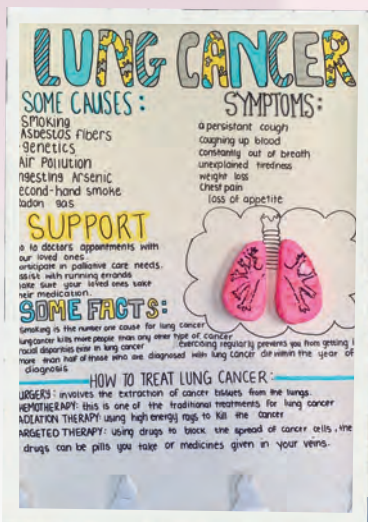 LUNG CANCER
SOME CAUSES:
Smoking
Asbestos fibers
genetics
Air Pollution
ngesting Arsenic
econd-hand smoke
adon gas
SYMPTOMS:
a persistant cough
coughing up blood
constantly out of breath
unexplained tiredness
weight loss
Chest pain
loss of appetite
SUPPORT
o to doctors appointments with
our loved ones.
articipate in palliative care needs.
ssist with running errands
ake sure your loved ones take
heir medication.
SOME FACTS:
Smoking is the number one cause for lung cancer
lung cancer kills more people than any other type of cancer
racial disparities exist in lung cancer
exercising regularly prevents you from getting l
more than half of those who are diagnosed with lung cancer die within the year of
diagnosis
HOW TO TREAT LUNG CANCER:
URGERY: involves the extraction of cancer tissues from the lungs.
HEMOTHERAPY: this is one of the traditional treatments for lung cancer
ADIATION THERAPY: using high energy rays to kill the cancer
ARGETED THERAPY: using drugs to block the spread of cancer cells, the
drugs can be pills you take or medicines given in your veins.